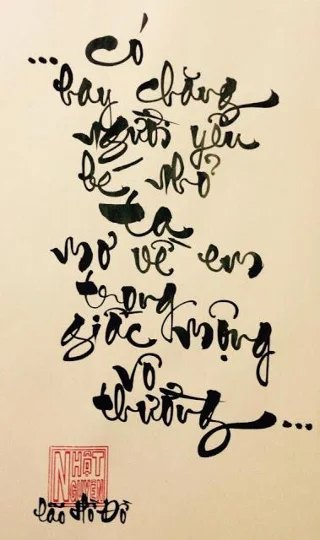 ... Có
hay chăng
người yêu
bé nhỏ
Ta
mơ về em
trong
giấc mộng
vô
thường ...
NHẬT
NGUYÊN
Lão Hồ Đồ